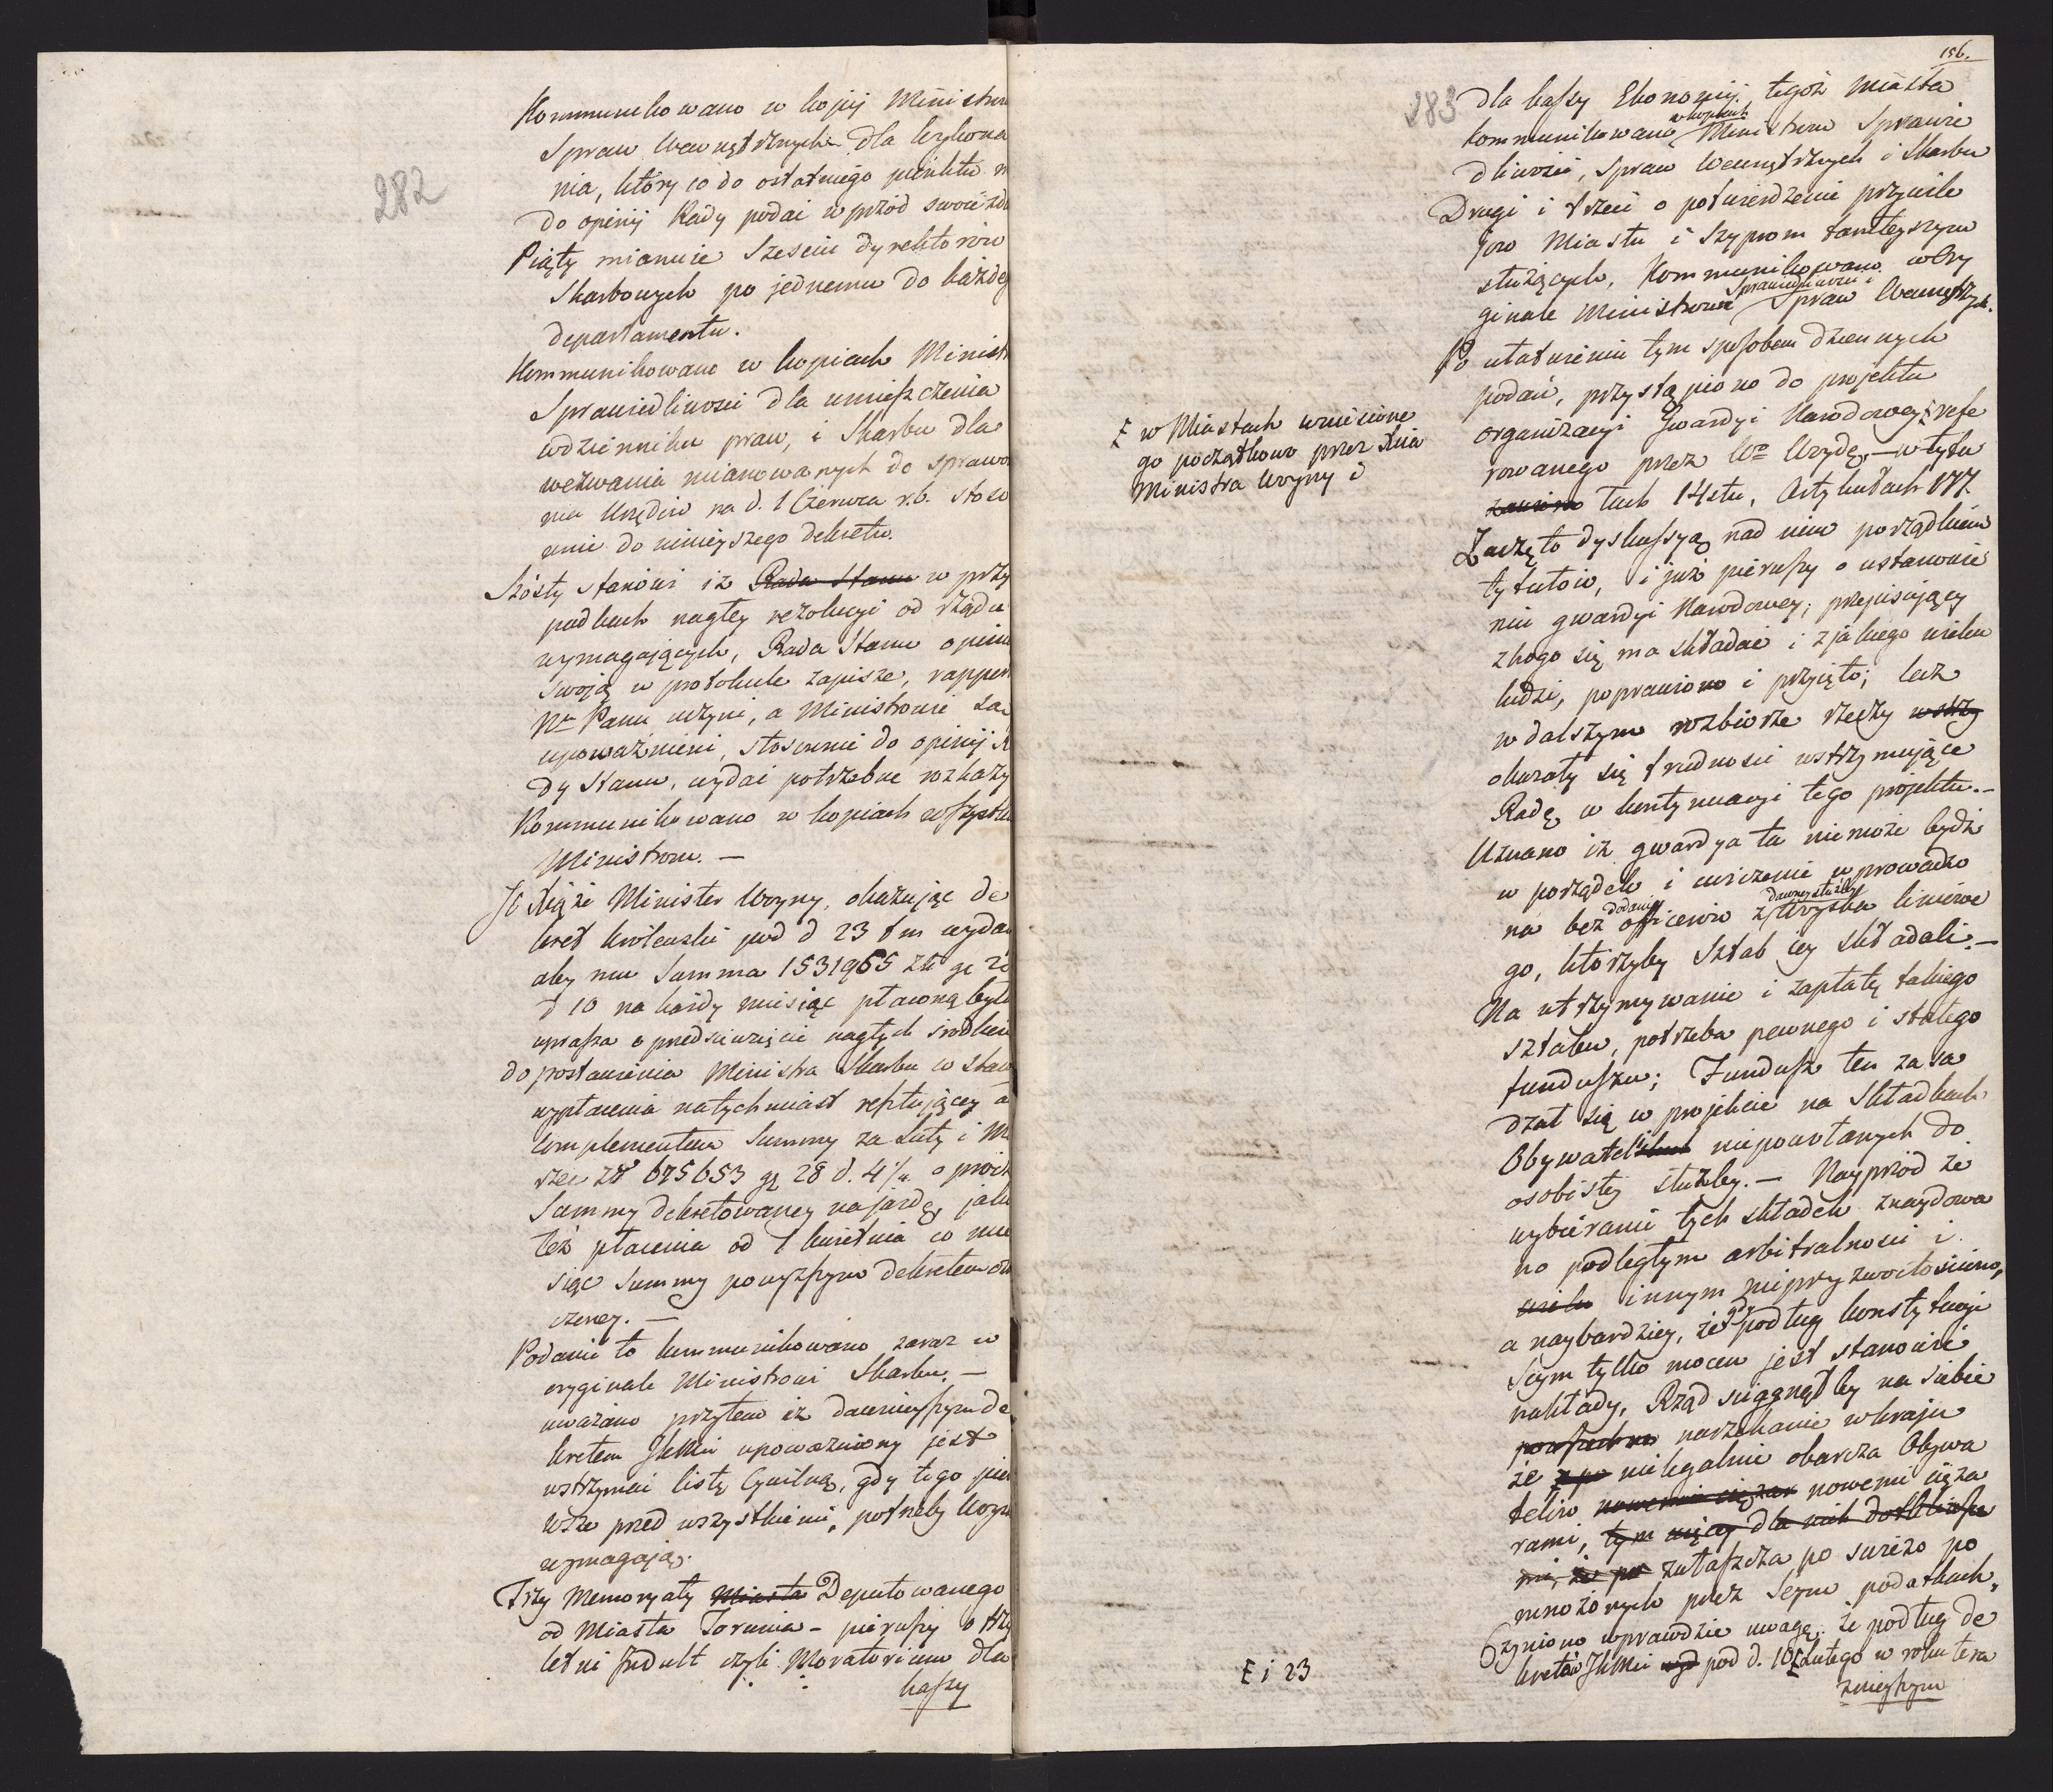 282
Kommunikowano w kopij Ministrow
Spraw Wewnętrznych dla wykona
nia, który co do ostatniego punktu
do opinij Rady podai wprzód swoie
Piąty mianuie Sześciu dyrektorów
Skarbowych po jednemu do każdeg
departamentu.
Kommunikowano w kopiach Ministr
Sprawiedliwości dla umieszczenia
wdzienniku praw, i Skarbu dla
wezwania mianowanych do sprawo
nia Urzędów na d. 1 Czerwca r.b. stoso
wnie do ninieyszego dekretu.
Szósty stanowi iż Rada Stanu w przy
padkach nagłey rezolucyi od rządu
wymagających, Rada Stanu opinią
swoją w protokule zapisze, rapport
Nmu Panu uczyni, a Ministrowie są
upoważnieni, stosownie do opinij R
dy Stanu, wydai potrzebne rozkazy
Kommunikowano w kopiach wszystk
Ministrom. —
JO Xiąże Minister Woyny, okazując de
kret Królewski pod d 23 t m wydan
aby mu Summa 1531965 Zł gr 20
d 10 na każdy miesiąc płaconą była
uprasza o przedsięwzięcie nagłych środków
do postawienia Ministra Skarbu w stan
wypłacenia natychmiast resztującey a
complementem Summy za Luty i Ma
rzec Zł 675653 gr 28 d. 4 1/2 oprócz
Summy dekretowaney na jazdę, jako
też płacenia od 1 kwietnia co mie
siąc Summy powyższym dekretem ozn
czoney. —
Podanie to kommunikowano zaraz w
oryginale Ministrowi Skarbu. —
uważano przytem iż dawnieyszym de
kretem JKMci upoważniony jest
wstrzymai listę Cywilną, gdy tego pier
wsze przed wszystkiemi, potrzeby Woyn
wymagają.
Trzy Memoryały Miasta Deputowanego
od Miasta Torunia — pierwszy o trzy
letni Indult czyli Moratorium dla
kassy
156.
283
dla kassy Ekonomij tegoż Miasta
kommunikowano w kopiach Ministrom Sprawie
dliwości, Spraw Wewnętrznych i Skarbu
Drugi i trzeci o potwierdzenie przywile
jów Miastu i Szyprom tamteyszym
służących, Kommunikowano w Ory
ginale Ministrom Sprawiedliwości i Spraw Wewnętrznych.
Po ułatwieniu tym sposobem dziennych
podań, przystąpiono do projektu
organizacyi Gwardyi Narodowey [ refe
rowanego przez Wo Wrydę, — w tytu
zawier łach 14stu, Artykułach 177.
[ w Miastach wniesione
go początkowo przez Xcia
Ministra Woyny i
Zaczęto dyskussyą nad nim porządkiem
tytułów, i już pierwszy o ustanowie
niu gwardyi Narodowey, przepisujący
z kogo się ma składać i z jakiego wieku
ludzi, poprawiono i przyjęto; lecz
w dalszym rozbiorze rzeczy wstrzy
okazały się trudności wstrzymujące
Radę w kontynuacyi tego projektu. —
Uznano iż gwardya ta niemoże bydź
w porządek i ćwiczenie wprowadzo
na bez dodania officerów z dawney służby woyska liniowe
go, którzyby Sztab iey składali. —
Na utrzymywanie i zapłatę takiego
sztabu, potrzeba pewnego i stałego
funduszu; Fundusz ten zasa
dzał się w projekcie na Składkach
Obywateli niepowołanych do
osobistey służby. — Nayprzód że
wybieranie tych składek znaydowa
no podległym arbitralności i
wielu innym nieprzyzwoitościom,
a naybardziey, że gdy podług konstytucyi
Seym tylko mocen jest stanowić
nakłady, Rząd ściągnąłby na siebie
powszechne narzekanie w kraju
że z po nielegalnie obarcza Obywa
telów nowemi ciężar nowemi cięża
rami, tym więcey dla nich dotkliwsze
mi, że po zwłaszcza po świeżo po
mnożonych przez Seym podatkach.
Czyniono wprawdzie uwagę, że podług de
kretów JKMci wyd pod d. 10 [ Lutego w roku tera
znieyszym
[ i 23